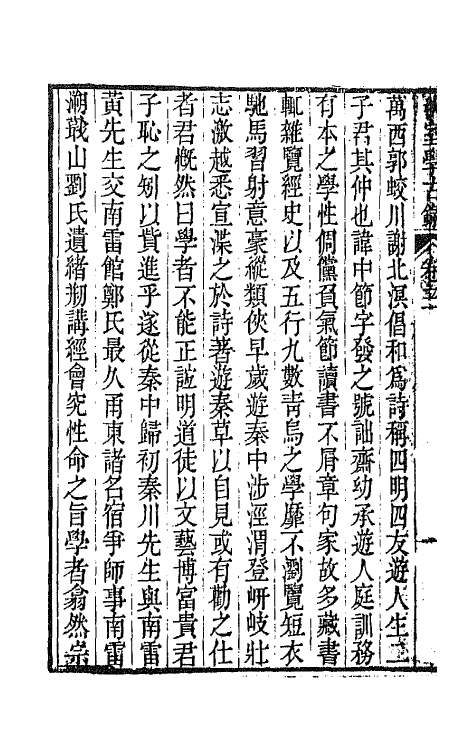 萬西郭蛟川謝北溟倡和爲詩稱四明四友遊人生二
子君其仲也諱中節字發之號詘齋幼承遊人庭訓務
有本之學性倜儻負氣節讀書不屑章句家故多藏書
輒雜覽經史以及五行九數靑烏之學靡不瀏覽短衣
馳馬習射意豪縱類俠早歲遊秦中涉涇渭登岍岐壯
志激越悉宣渫之於詩著遊秦草以自見或有勸之仕
者君慨然曰學者不能正誼明道徒以文藝博富貴君
子恥之矧以貲進乎遂從秦中歸初秦川先生與南雷
黃先生交南雷館鄭氏最久甬東諸名宿爭師事南雷
溯蕺山劉氏遺緖刱講經會究性命之旨學者翕然宗